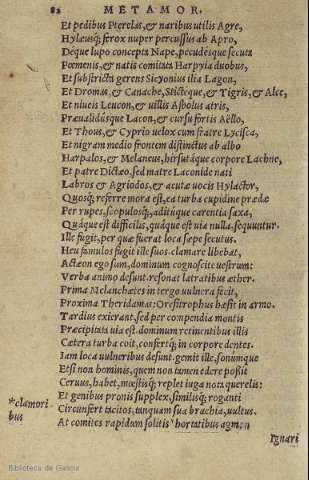 82 METAMOR.
Et pedibus Pterelas, & naribus utilis Agre,
Hylæusq; ferox nuper percussus ab Apro,
Deque lupo concepta Nape, pecudesque secuta
Pœmenis, & natis comitata Harpyia duobus,
Et substricta gerens Sicyonius ilia Lagon,
Et Dromas, & Canache, Sticteque, & Tigris, & Alce,
Et niueis Leucon, & uillis Asbolus atris,
Præualidusque Lacon, & cursu fortis Aëllo,
Et Thous, & Cyprio uelox cum fratre Lycisca,
Et nigram medio frontem distinctus ab albo
Harpalos, & Melaneus, hirsutáque corpore Lachne,
Et patre Dictæo, sed matre Laconide nati
Labros & Agriodos, & acutæ uocis Hylactor,
Quosq; referre mora est, ea turba cupidine prædæ
Per rupes, scopulosq;, aditúque carentia saxa,
Quáque est difficilis, quáque est uia nulla, sequuntur.
Ille fugit, per quæ fuerat loca sæpe secutus.
Heu famulos fugit ille suos. clamare libebat,
Actæon ego sum, dominum cognoscite uestrum:
Verba animo desunt. resonat latratibus æther.
Prima Melanchætes in tergo uulnera fecit,
Proxima Theridamas: Oresitrophus hæsit in armo.
Tardius exierant, sed per compendia montis
Præcipitata uia est. dominum retinentibus illis
Cætera turba coit, confertq; in corpore dentes.
Iam loca uulneribus desunt. gemit ille, sonumque
Etsi non hominis, quem non tamen edere possit
Ceruus, habet, mœstisq; replet iuga nota querelis:
Et genibus pronis supplex, similisq; roganti
*clamoribus
Circunfert tacitos, tanquam sua brachia, uultus.
At comites rapidum solitis *hortatibus agmen
Ignari
Biblioteca de Galicia